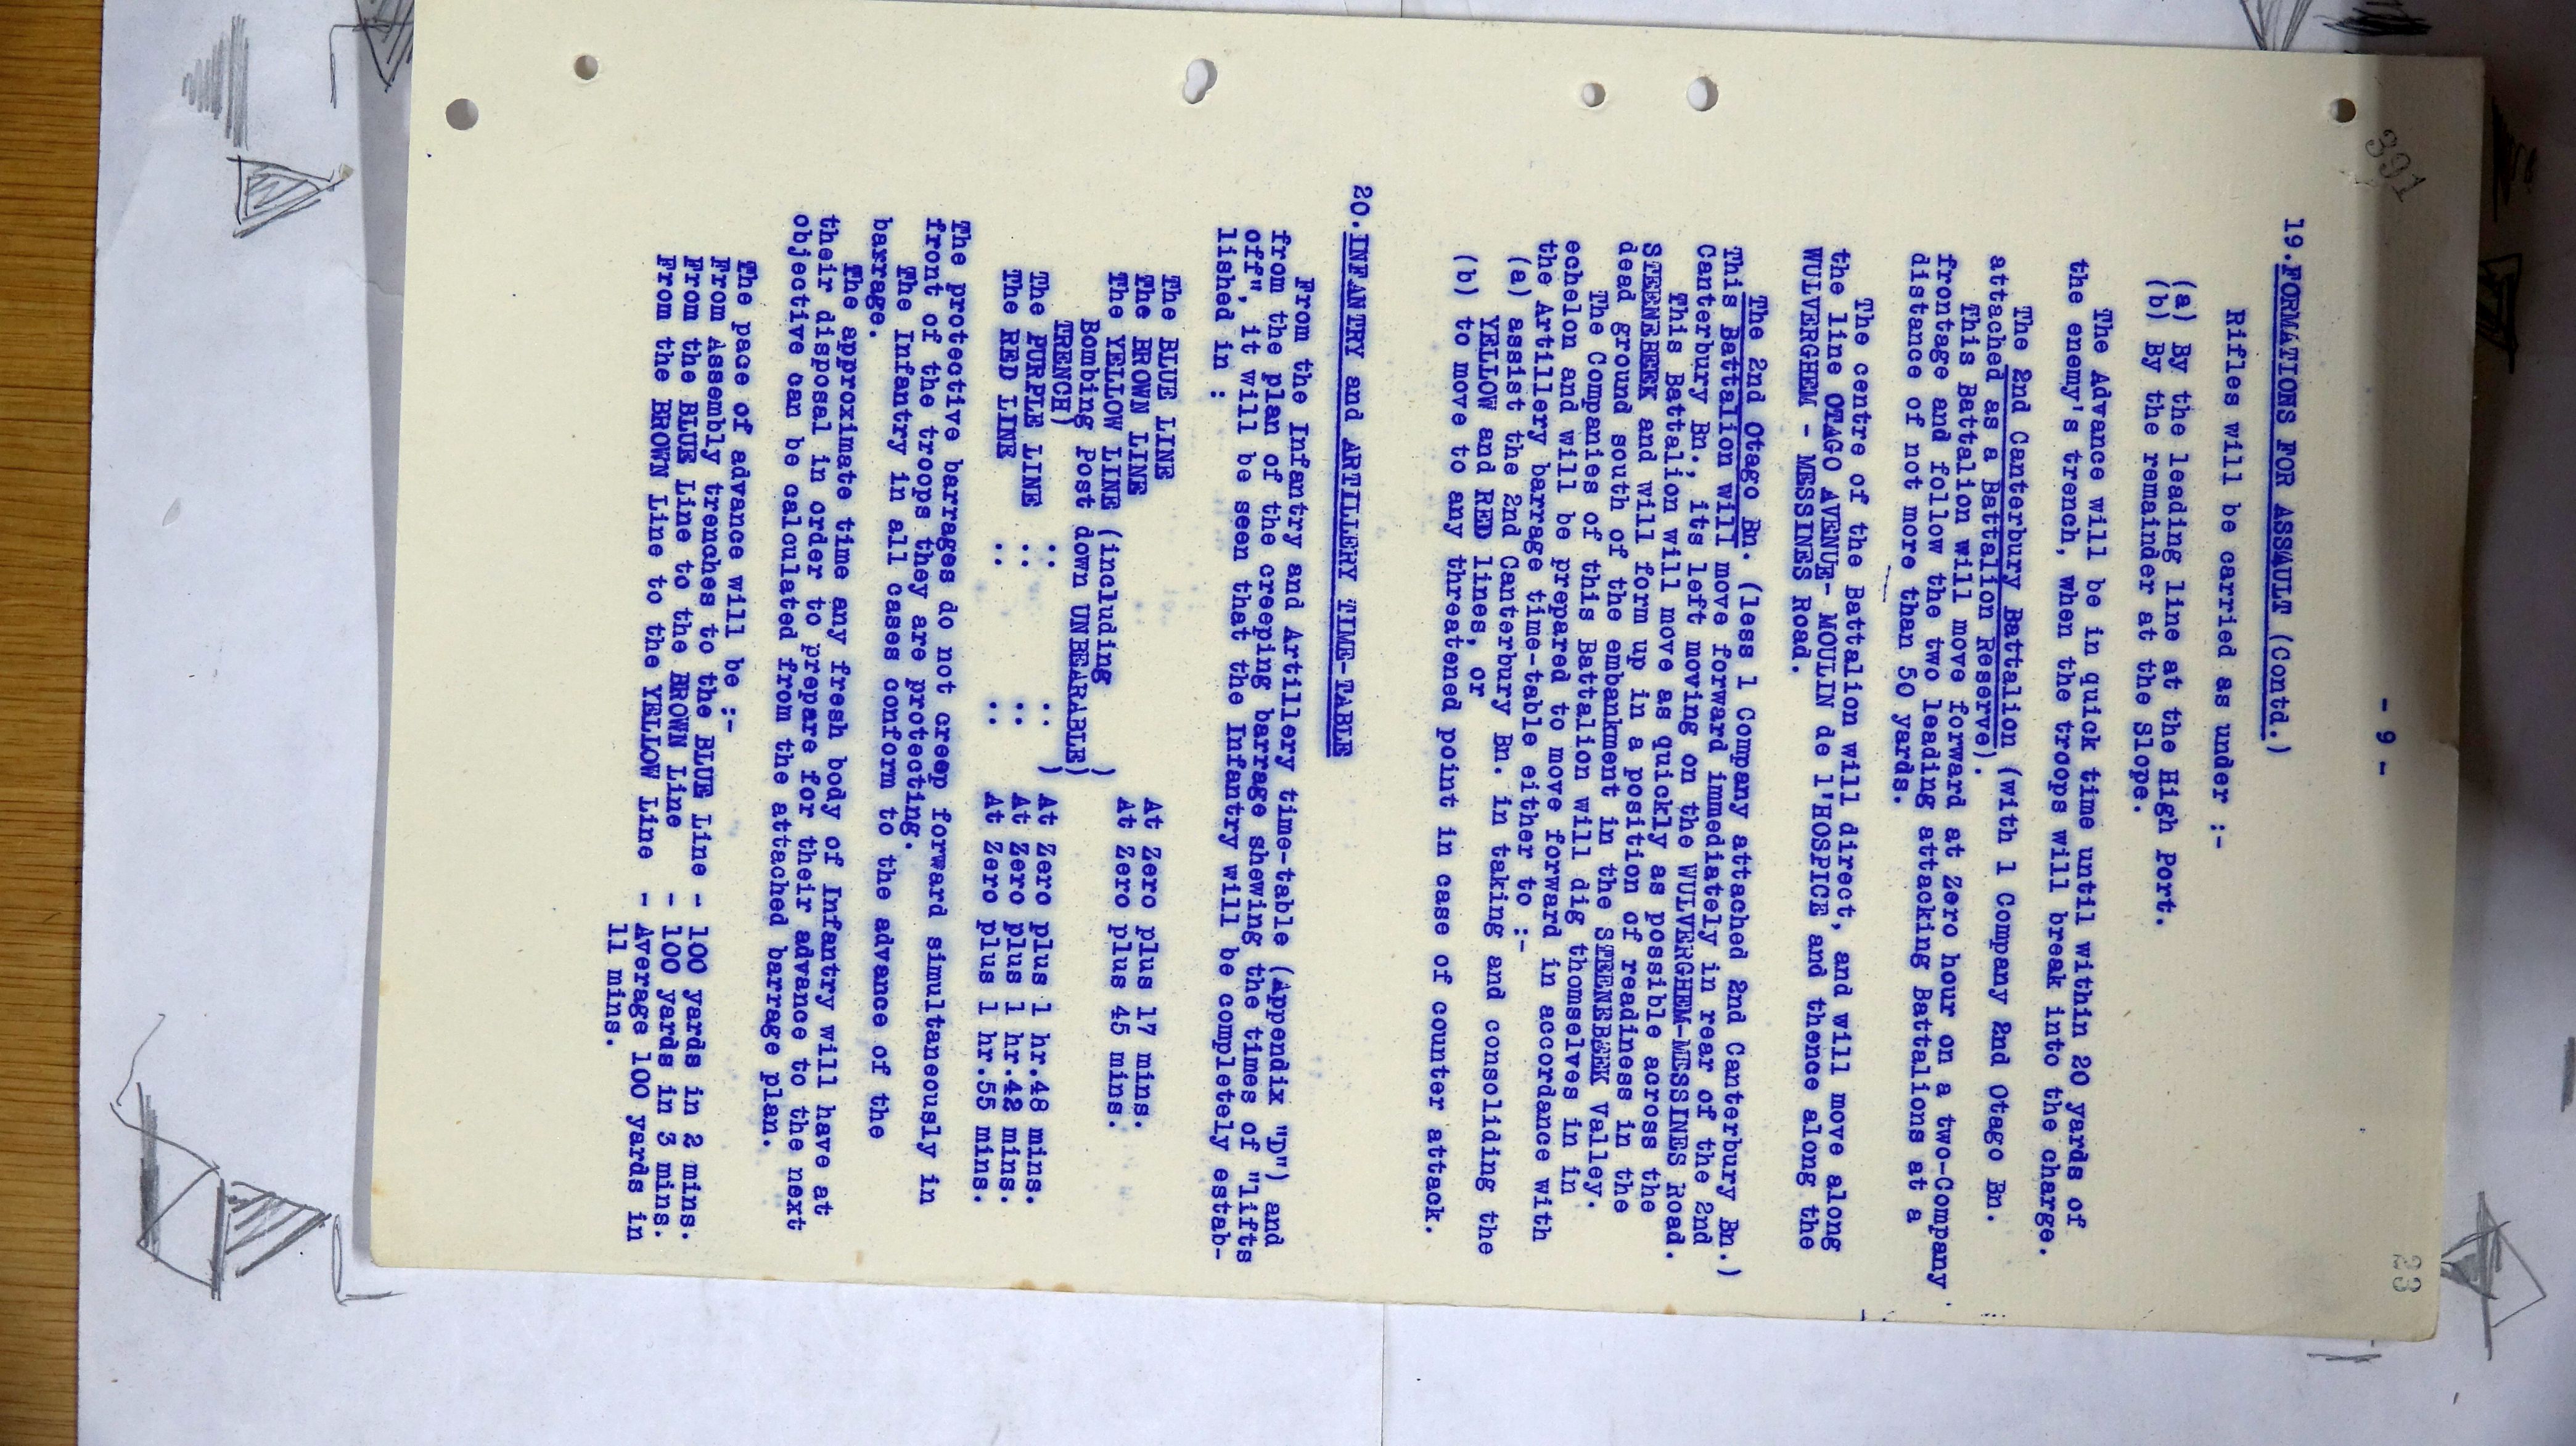 - 9 -
23
391
19. FORMATIONS FOR ASSAULT (Contd.)
Rifles will be carried as under :-
(a) By the leading line at the High Port.
(b) By the remainder at the Slope.
The Advance will be in quick time until within 20 yards of
the enemy's trench, when the troops will break into the charge.
The 2nd Canterbury Battalion (with 1 Company 2nd Otago Bn.
attached as a Battalion Reserve).
This Battalion will move forward at Zero hour on a two-Company
frontage and follow the two leading attacking Battalions at a
distance of not more than 50 yards.
The centre of the Battalion will direct, and will move along
the line OTAGO AVENUE- MOULIN de l'HOSPICE and thence along the
WULVERGHEM - MESSINES Road.
The 2nd Otago Bn. (less 1 Company attached 2nd Canterbury Bn.)
This Battalion will move forward immediately in rear of the 2nd
Canterbury Bn., its left moving on the WULVERGHEM-MESSINES Road.
This Battalion will move as quickly as possible across the
STEENEBEEK and will form up in a position of readiness in the
dead ground south of the embankment in the STEENEBEEK Valley.
The Companies of this Battalion will dig themselves in in
echelon and will be prepared to move forward in accordance with
the Artillery barrage time-table either to :-
(a) assist the 2nd Canterbury Bn. in taking and consoliding the
YELLOW and RED lines, or
(b) to move to any threatened point in case of counter attack.
20. INFANTRY and ARTILLERY TIME-TABLE
From the Infantry and Artillery time-table (Appendix "D") and
from the plan of the creeping barrage shewing the times of "lifts
off", it will be seen that the Infantry will be completely estab-
lished in :
The BLUE LINE At Zero plus 17 mins.
The BROWN LINE At Zero plus 45 mins.
The YELLOW LINE (including )
Bombing Post down UNBEARABLE)
TRENCH) ) At Zero plus 1 hr.48 mins.
The PURPLE LINE :: :: At Zero plus 1 hr.42 mins.
The RED LINE :: :: At Zero plus 1 hr.55 mins.
The protective barrages do not creep forward simultaneously in
front of the troops they are protecting.
The Infantry in all cases conform to the advance of the
barrage.
The approximate time any fresh body of Infantry will have at
their disposal in order to prepare for their advance to the next
objective can be calculated from the attached barrage plan.
The pace of advance will be :-
From Assembly trenches to the BLUE Line - 100 yards in 2 mins.
From the BLUE Line to the BROWN Line - 100 yards in 3 mins.
From the BROWN Line to the YELLOW Line - Average 100 yards in
11 mins.